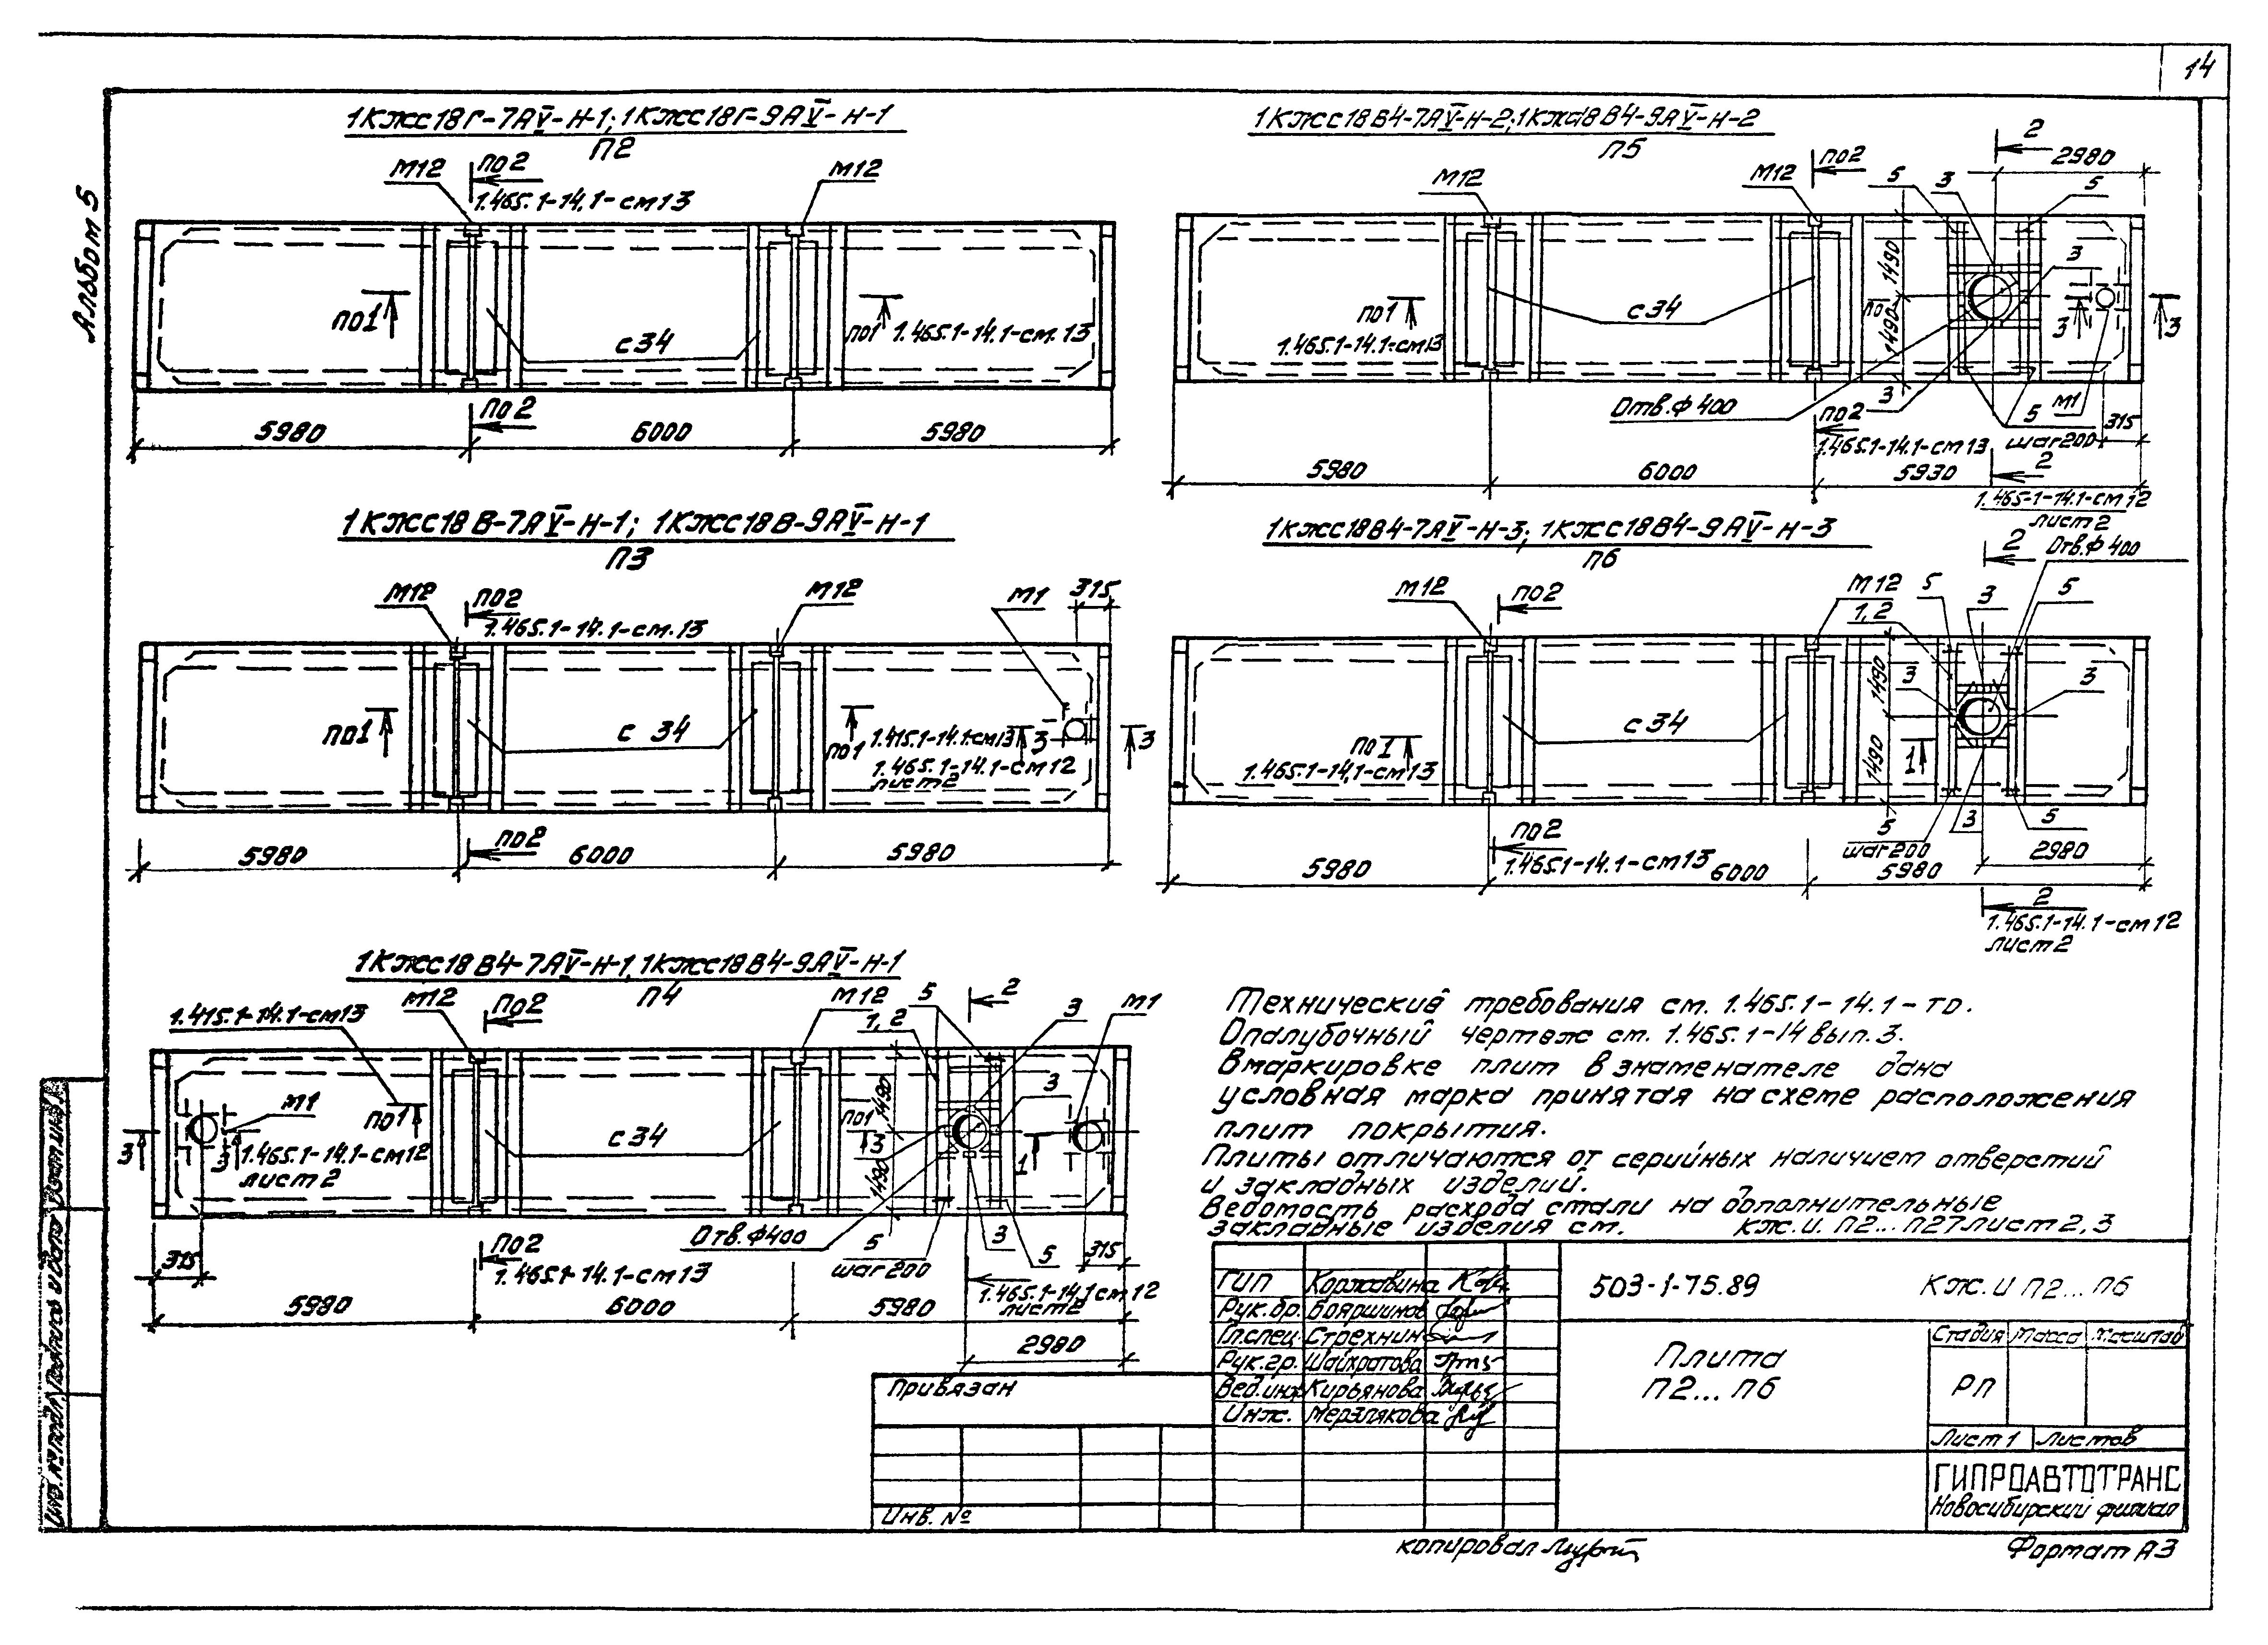 14
Альбом 5
1КЖС18Г-7АV-Н-1; 1КЖС18Г-9АV-Н-1
П2
М12
по2
1.465.1-14.1-см13
М12
по1
С34
по1 1.465.1-14.1-см.13
по2
5980
6000
5980
1КЖС18В-7АV-Н-1; 1КЖС18В-9АV-Н-1
П3
М12
по2
1.465.1-14.1-см.13
М12
М1
315
по1
С 34
по1
1.415.1-14.1-см13
3
3
1.465.1-14.1-см12
лист2
по2
5980
6000
5980
1КЖС18В4-7АV-Н-1, 1КЖС18В4-9АV-Н-1
П4
1.415.1-14.1-см13
М12
по2
М12
5
2
3
М1
1,2
1490
3
М1
по1
по1
3
3
С34
3
1
1.465.1-14.1-см12
лист2
1490
Отв.ф400
5
шаг200
3
5
315
315
по2
1.465.1-14.1-см13
1.465.1-14.1см12
лист2
5980
6000
5980
2980
1КЖС18В4-7АV-Н-2; 1КЖС18В4-9АV-Н-2
П5
2
2980
М12
М12
по2
5
3
5
1490
3
по1
1.465.1-14.1-см13
С34
по
1490
3
3
Отв.ф400
по2
3
5
М1
315
1.465.1-14.1-см13
шаг200
5980
6000
5930
2
1.465-1-14.1-см12
лист2
1КЖС18В4-7АV-Н-3; 1КЖС18В4-9АV-Н-3
П6
2
Отв.ф400
М12
по2
М12
5
3
5
1,2
1490
3
3
С34
по1
1.465.1-14.1-см13
1490
1
по2
5
шаг200
3
5
2980
5980
1.465.1-14.1-см13
6000
5980
2
1.465.1-14.1-см12
лист2
Технический требования см. 1.465.1-14.1-ТО.
Опалубочный чертеж см. 1.465.1-14 вып.3.
В маркировке плит в знаменателе дана
условная марка принятая на схеме расположения
плит покрытия.
Плиты отличаются от серийных наличием отверстий
и закладных изделий.
Ведомость расхода стали на дополнительные
закладные изделия см. КЖ.И. П2...П27 лист 2,3
ГИП Коржавина
Рук.бр. Бояршинов
Гл.спец. Стрехнин
Рук.гр. Шайхратова
Вед.инж. Кирьянова
Инж. Мерзлякова
503-1-75.89
КЖ.И П2...П6
Плита
П2...П6
Стадия Масса Масштаб
РП
Лист 1 Листов
ГИПРОАВТОТРАНС
Новосибирский филиал
Привязан
Инв. №
Инв.№подл. Подпись и дата Взам.инв.№
копировал
Формат А3